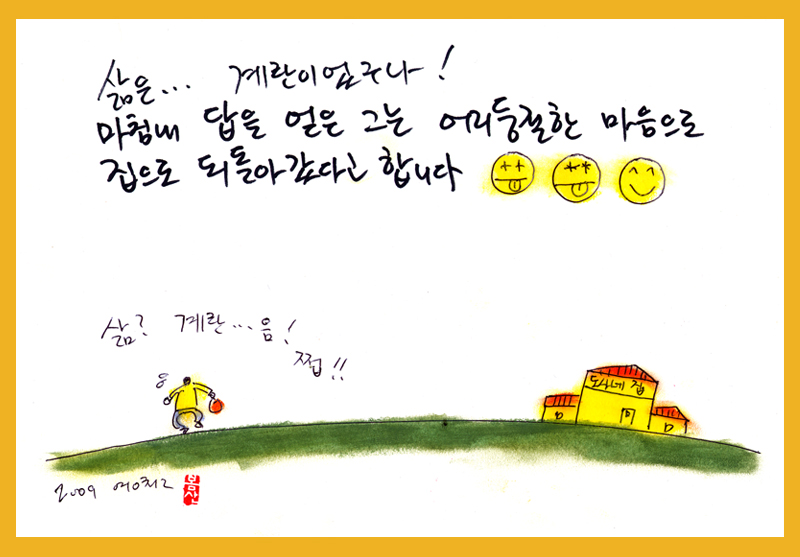 삶은... 계란이었구나!
마침내 답을 얻은 그는 어리둥절한 마음으로
집으로 되돌아갔다고 합니다
삶? 계란...음!
쩝!!
응
도사네 집
2009
봄산